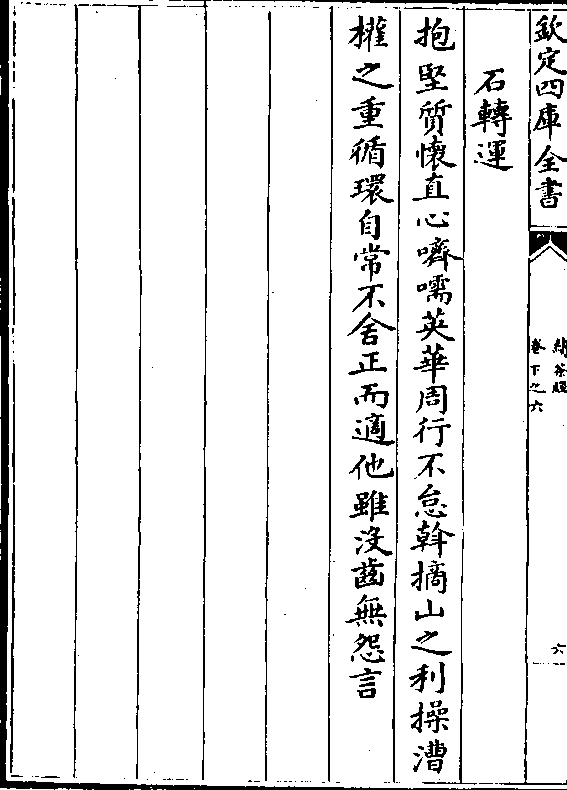 欽定四庫全書
續茶經
卷下之六
六
石轉運
抱堅質懷直心嚌嚅英華周行不怠斡摘山之利操漕
權之重循環自常不舍正而適他雖沒齒無怨言